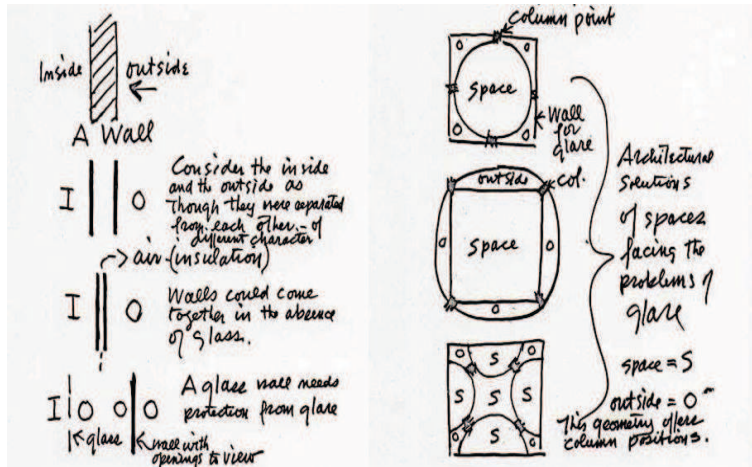 Inside outside
A Wall
I O
Consider the inside
and the outside as
Though they were separated
from each other - of
different character
air (insulation)
I O
Walls could come
together in the absence
of glass.
I O O O
A glass wall needs
protection from glare
glass
wall with
openings to view
column point
O O
space
O O
Wall
for
glare
outside
col.
O Space O
O
O S O
S S S
O S O
Architectural
solutions
of spaces
facing the
problems of
glare
space = S
outside = O
This geometry offers
column positions.